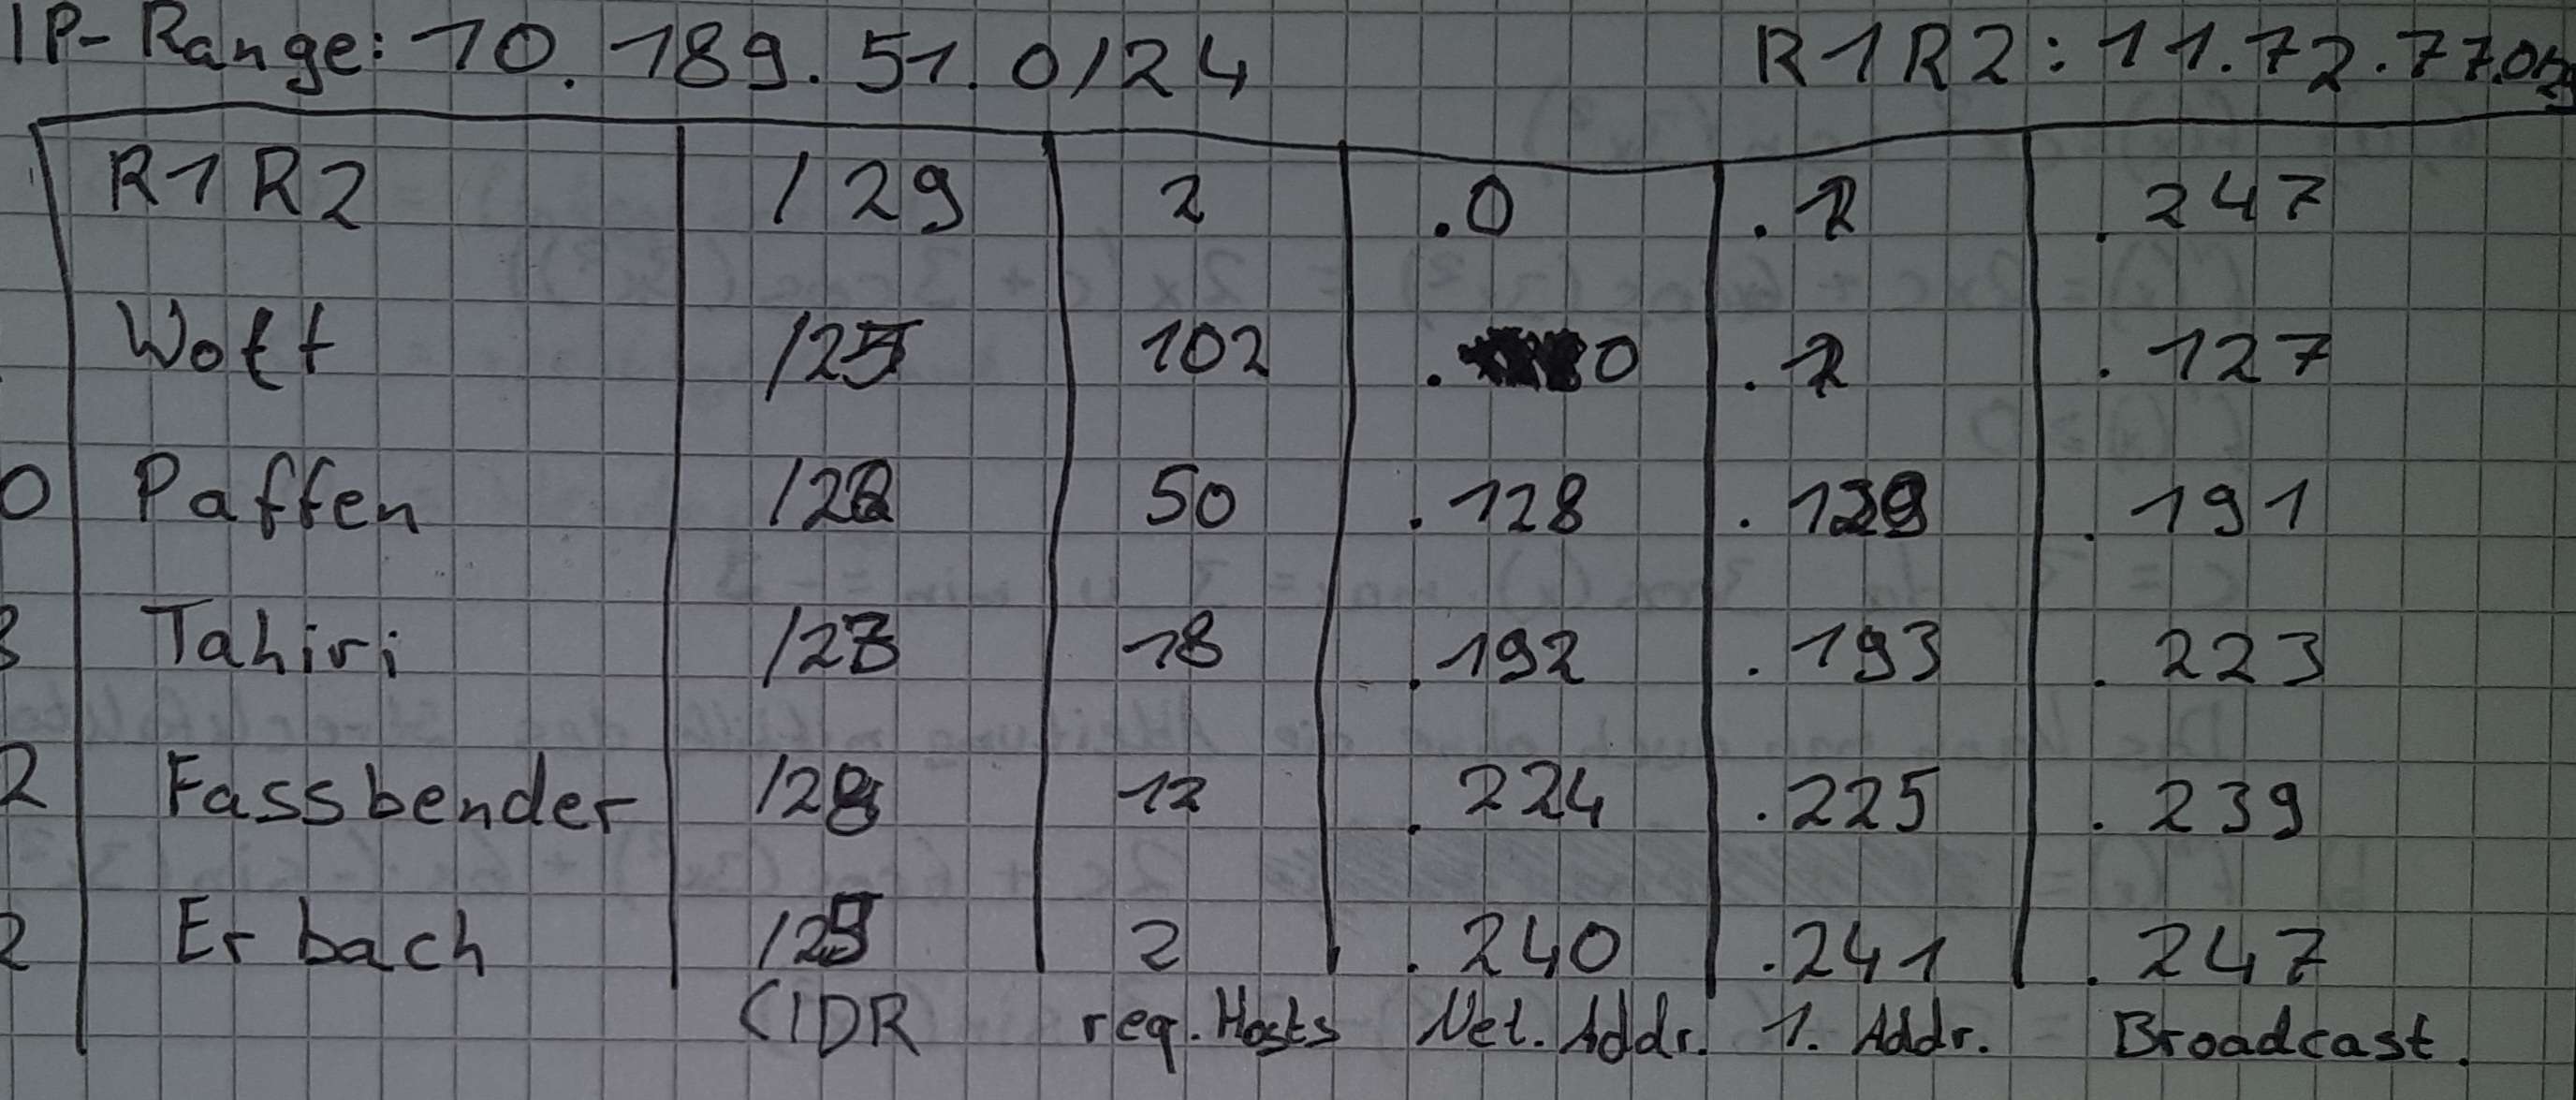 IP-Range: 10.189.51.0/24 R1R2: 11.72.77.0/29
R1R2 /29 2 .0 .1 .247
Wott /25 102 .0 .1 .127
0 Paffen /26 50 .128 .129 .191
8 Tahiri /27 18 .192 .193 .223
2 Fassbender /28 12 .224 .225 .239
2 Erbach /29 2 .240 .241 .247
CIDR req. Hosts Net. Addr. 1. Addr. Broadcast.